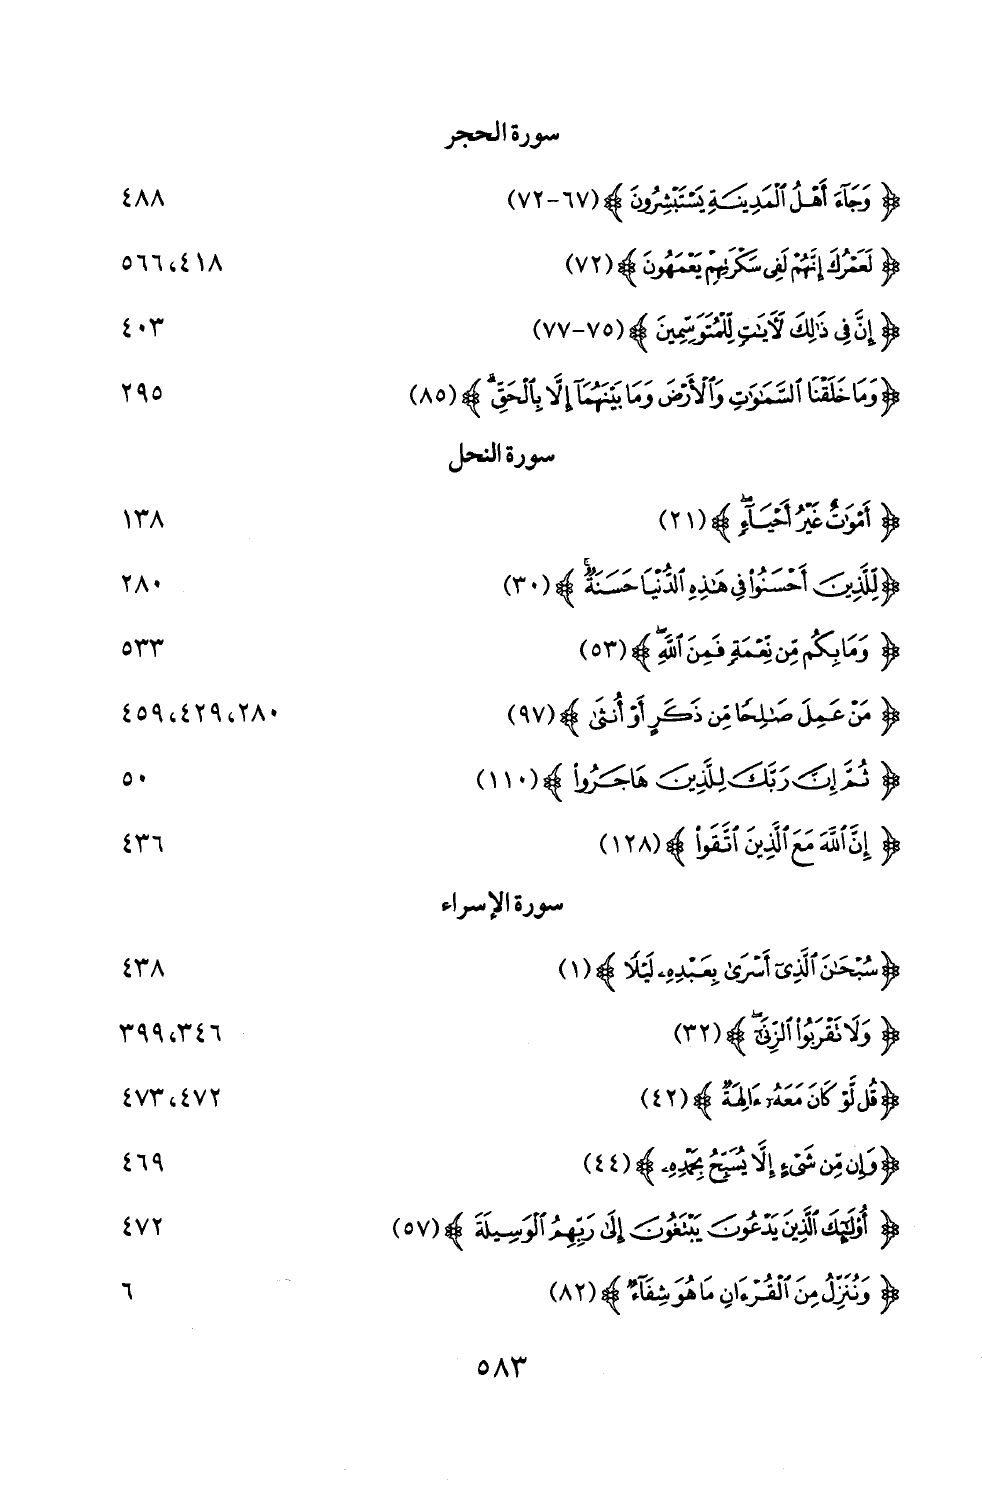 سورة الحجر
﴿ وَجَآءَ أَهْلُ ٱلْمَدِينَةِ يَسْتَبْشِرُونَ ﴾ (٦٧-٧٢) ٤٨٨
﴿ لَعَمْرُكَ إِنَّهُمْ لَفِى سَكْرَتِهِمْ يَعْمَهُونَ ﴾ (٧٢) ٤١٨، ٥٦٦
﴿ إِنَّ فِى ذَٰلِكَ لَءَايَٰتٍ لِّلْمُتَوَسِّمِينَ ﴾ (٧٥-٧٧) ٤٠٣
﴿ وَمَا خَلَقْنَا ٱلسَّمَٰوَٰتِ وَٱلْأَرْضَ وَمَا بَيْنَهُمَآ إِلَّا بِٱلْحَقِّ ۗ ﴾ (٨٥) ٢٩٥
سورة النحل
﴿ أَمْوَٰتٌ غَيْرُ أَحْيَآءٍ ۖ ﴾ (٢١) ١٣٨
﴿ لِّلَّذِينَ أَحْسَنُوا۟ فِى هَٰذِهِ ٱلدُّنْيَا حَسَنَةٌ ۚ ﴾ (٣٠) ٢٨٠
﴿ وَمَا بِكُم مِّن نِّعْمَةٍ فَمِنَ ٱللَّهِ ۖ ﴾ (٥٣) ٥٣٣
﴿ مَنْ عَمِلَ صَٰلِحًا مِّن ذَكَرٍ أَوْ أُنثَىٰ ﴾ (٩٧) ٢٨٠، ٤٢٩، ٤٥٩
﴿ ثُمَّ إِنَّ رَبَّكَ لِلَّذِينَ هَاجَرُوا۟ ﴾ (١١٠) ٥٠
﴿ إِنَّ ٱللَّهَ مَعَ ٱلَّذِينَ ٱتَّقَوا۟ ﴾ (١٢٨) ٤٣٦
سورة الإسراء
﴿ سُبْحَٰنَ ٱلَّذِىٓ أَسْرَىٰ بِعَبْدِهِۦ لَيْلًا ﴾ (١) ٤٣٨
﴿ وَلَا تَقْرَبُوا۟ ٱلزِّنَىٰٓ ۖ ﴾ (٣٢) ٣٤٦، ٣٩٩
﴿ قُل لَّوْ كَانَ مَعَهُۥٓ ءَالِهَةٌ ﴾ (٤٢) ٤٧٢، ٤٧٣
﴿ وَإِن مِّن شَىْءٍ إِلَّا يُسَبِّحُ بِحَمْدِهِۦ ﴾ (٤٤) ٤٦٩
﴿ أُو۟لَٰٓئِكَ ٱلَّذِينَ يَدْعُونَ يَبْتَغُونَ إِلَىٰ رَبِّهِمُ ٱلْوَسِيلَةَ ﴾ (٥٧) ٤٧٢
﴿ وَنُنَزِّلُ مِنَ ٱلْقُرْءَانِ مَا هُوَ شِفَآءٌ ﴾ (٨٢) ٦
٥٨٣